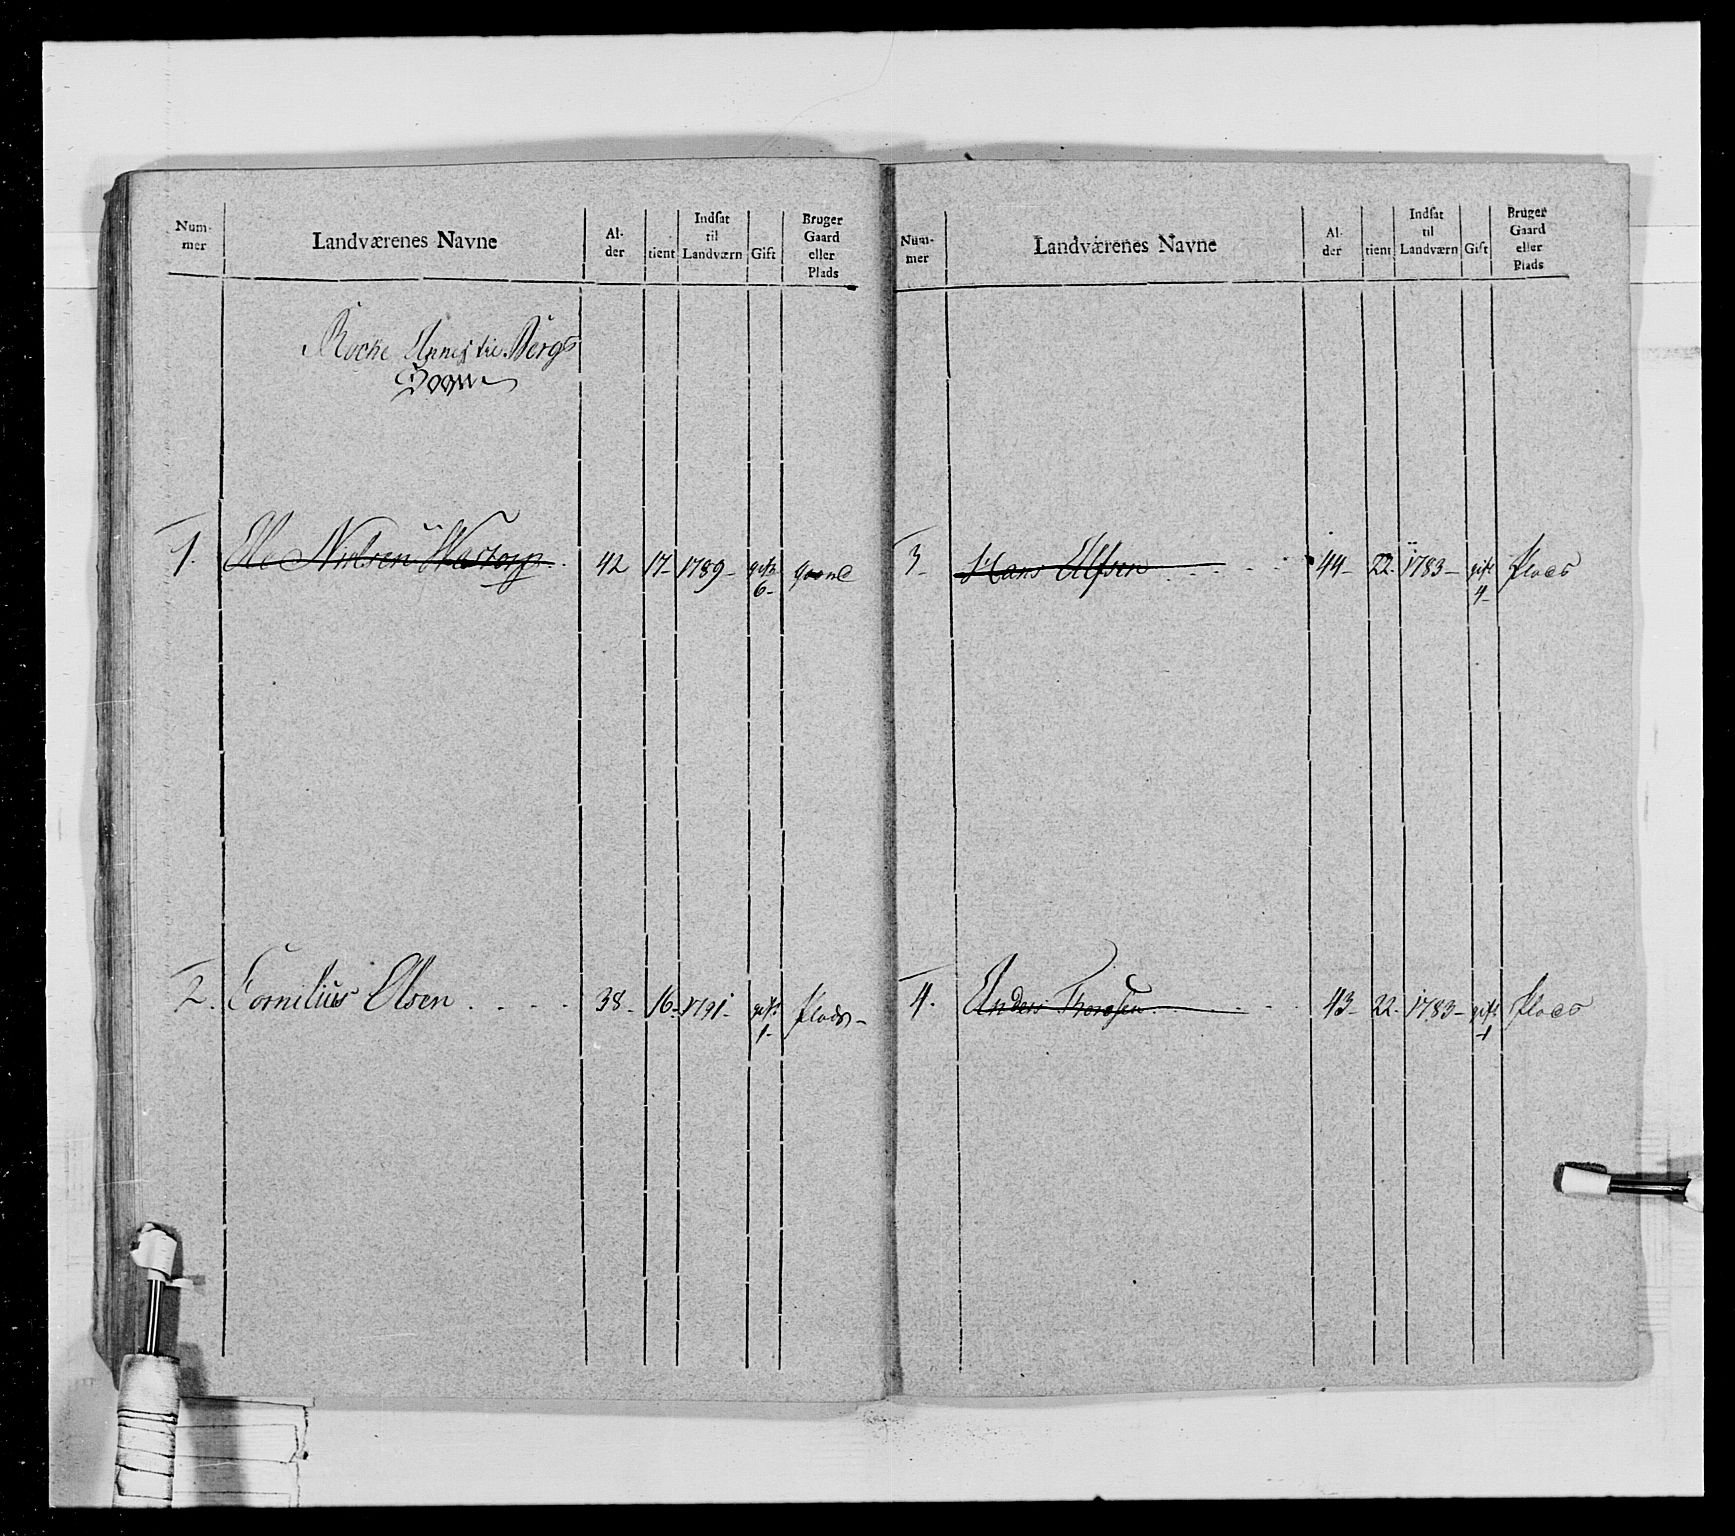 Num-
mer
Landværenes Navne
Al-
der
tient
Indsat
til
Landværn
Gift
Bruger
Gaard
eller
Plads
Rocke Annex til Bergs
1. Ole Nielsen 42 17- 1789- gift 6- Gaard
2. Cornilius Olsen 38- 16- 1791- gift 1- Plads-
Num-
mer
Landværenes Navne
Al-
der
tient
Indsat
til
Landværn
Gift
Bruger
Gaard
eller
Plads
3- Hans Olfsen 44- 22- 1783- gift 4- Plads
4. Anders Thoresen 43- 22- 1783- gift 1 Plads